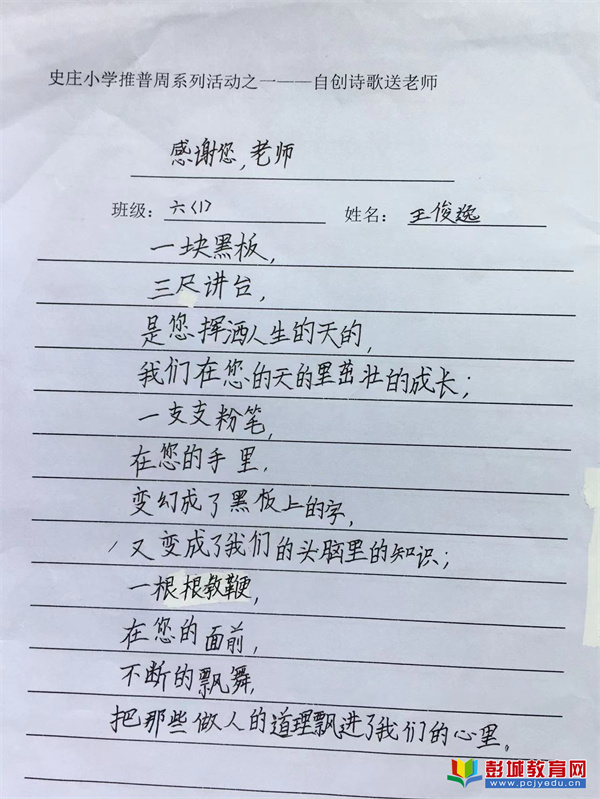 史庄小学推普周系列活动之一——自创诗歌送老师
感谢您,老师
班级：六〈1〉 姓名：王俊逸
一块黑板,
三尺讲台,
是您挥洒人生的天的,
我们在您的天的里茁壮的成长;
一支支粉笔,
在您的手里,
变幻成了黑板上的字,
又变成了我们的头脑里的知识;
一根根教鞭,
在您的面前,
不断的飘舞,
把那些做人的道理飘进了我们的心里。
彭城教育网
www.pcjyedu.cn